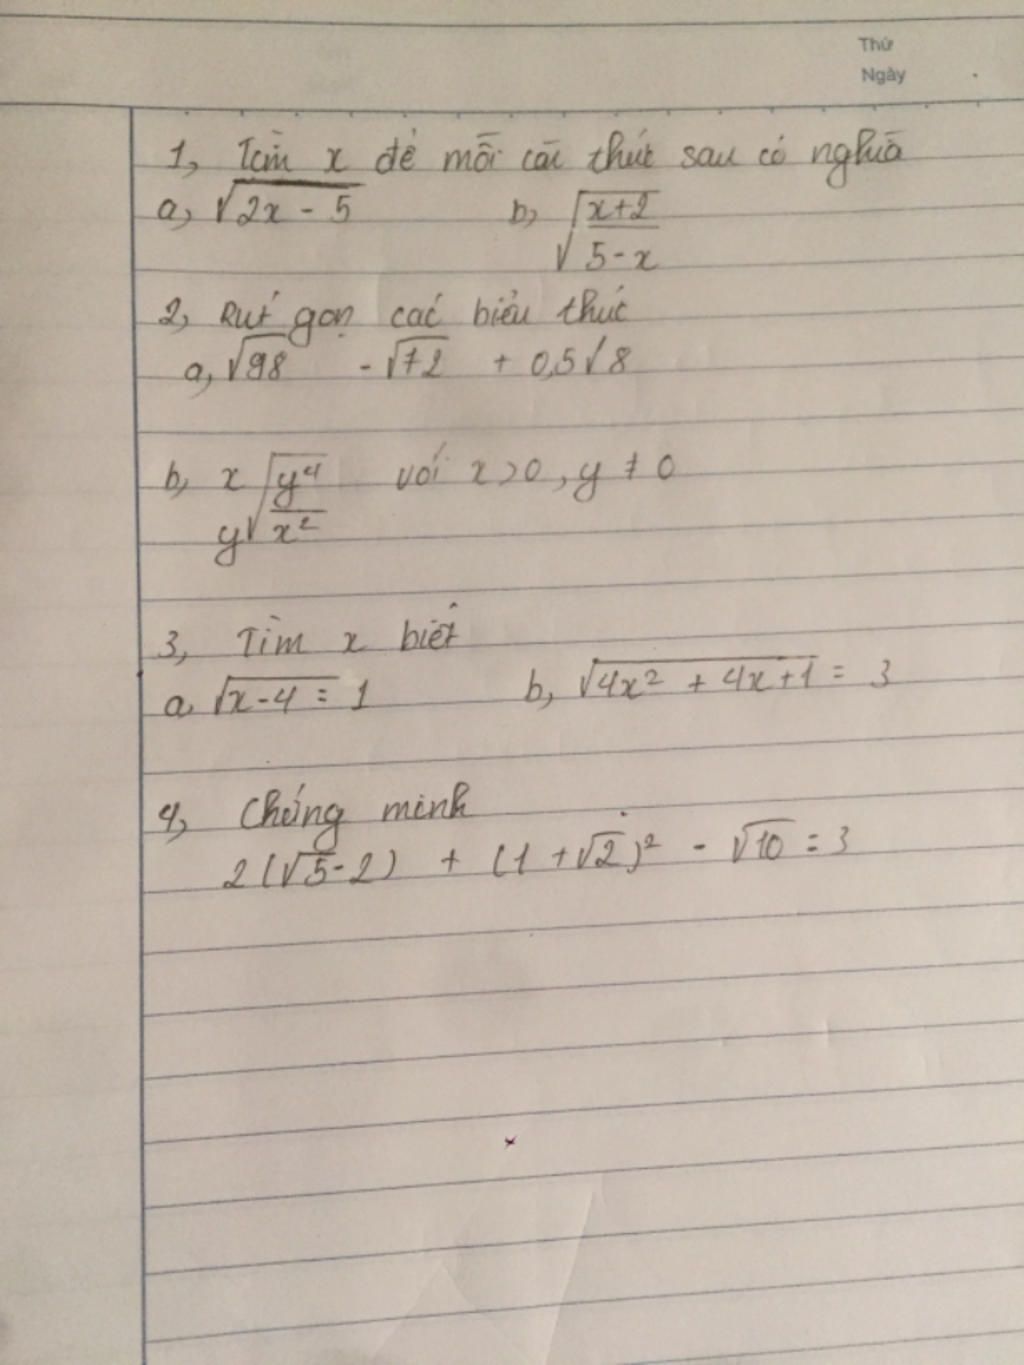 Thứ
Ngày
1, Tìm x để mỗi căn thức sau có nghĩa
a, √2x - 5 b, √x+2
5-x
2, Rút gọn các biểu thức
a, √98 - √72 + 0,5√8
b, x √y⁴ với x>0, y ≠ 0
y x²
3, Tìm x biết
a √x-4 = 1 b, √4x² + 4x+1 = 3
4, Chứng minh
2(√5-2) + (1+√2)² - √10 = 3